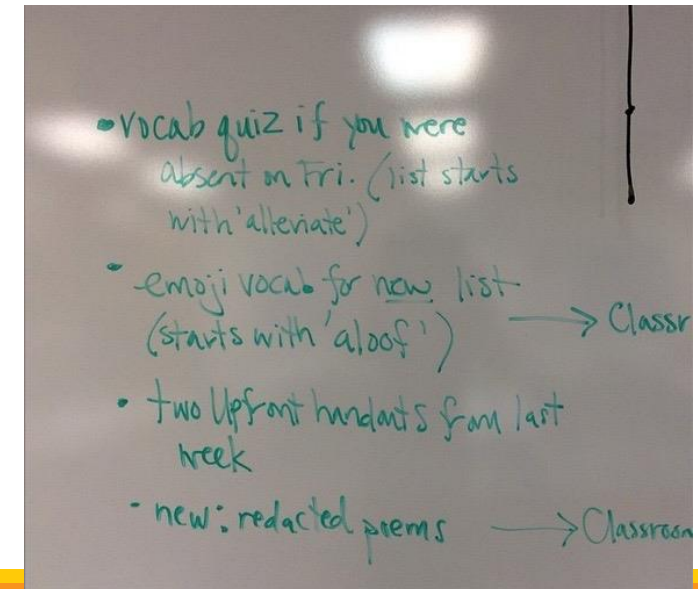 •vocab quiz if you were
absent on Fri. (list starts
with 'alleviate')
• emoji vocab for new list
(starts with 'aloof') → Classr
• two Upfront handouts from last
week
• new: redacted poems → Classroom